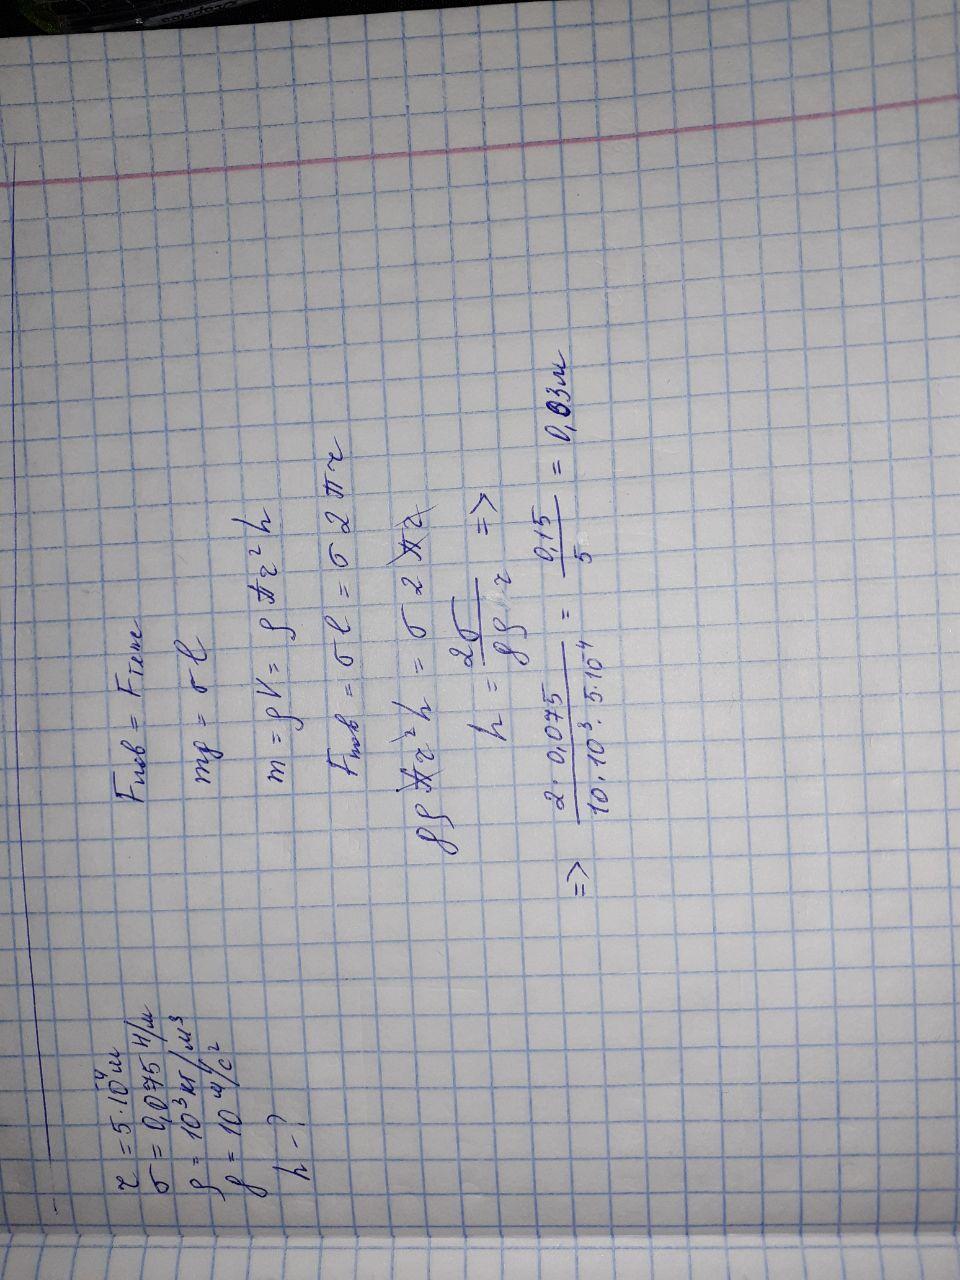 r = 5·10⁻⁴ м
σ = 0,075 Н/м
ρ = 10³ кг/м³
g = 10 м/с²
h - ?
Fпов = Fтяж
mg = σl
m = ρV = ρπr²h
Fпов = σl = σ2πr
gρπr²h = σ2πr
h = 2σ / gρr =>
=> 2·0,075 / 10·10³·5·10⁻⁴ = 0,15 / 5 = 0,03м